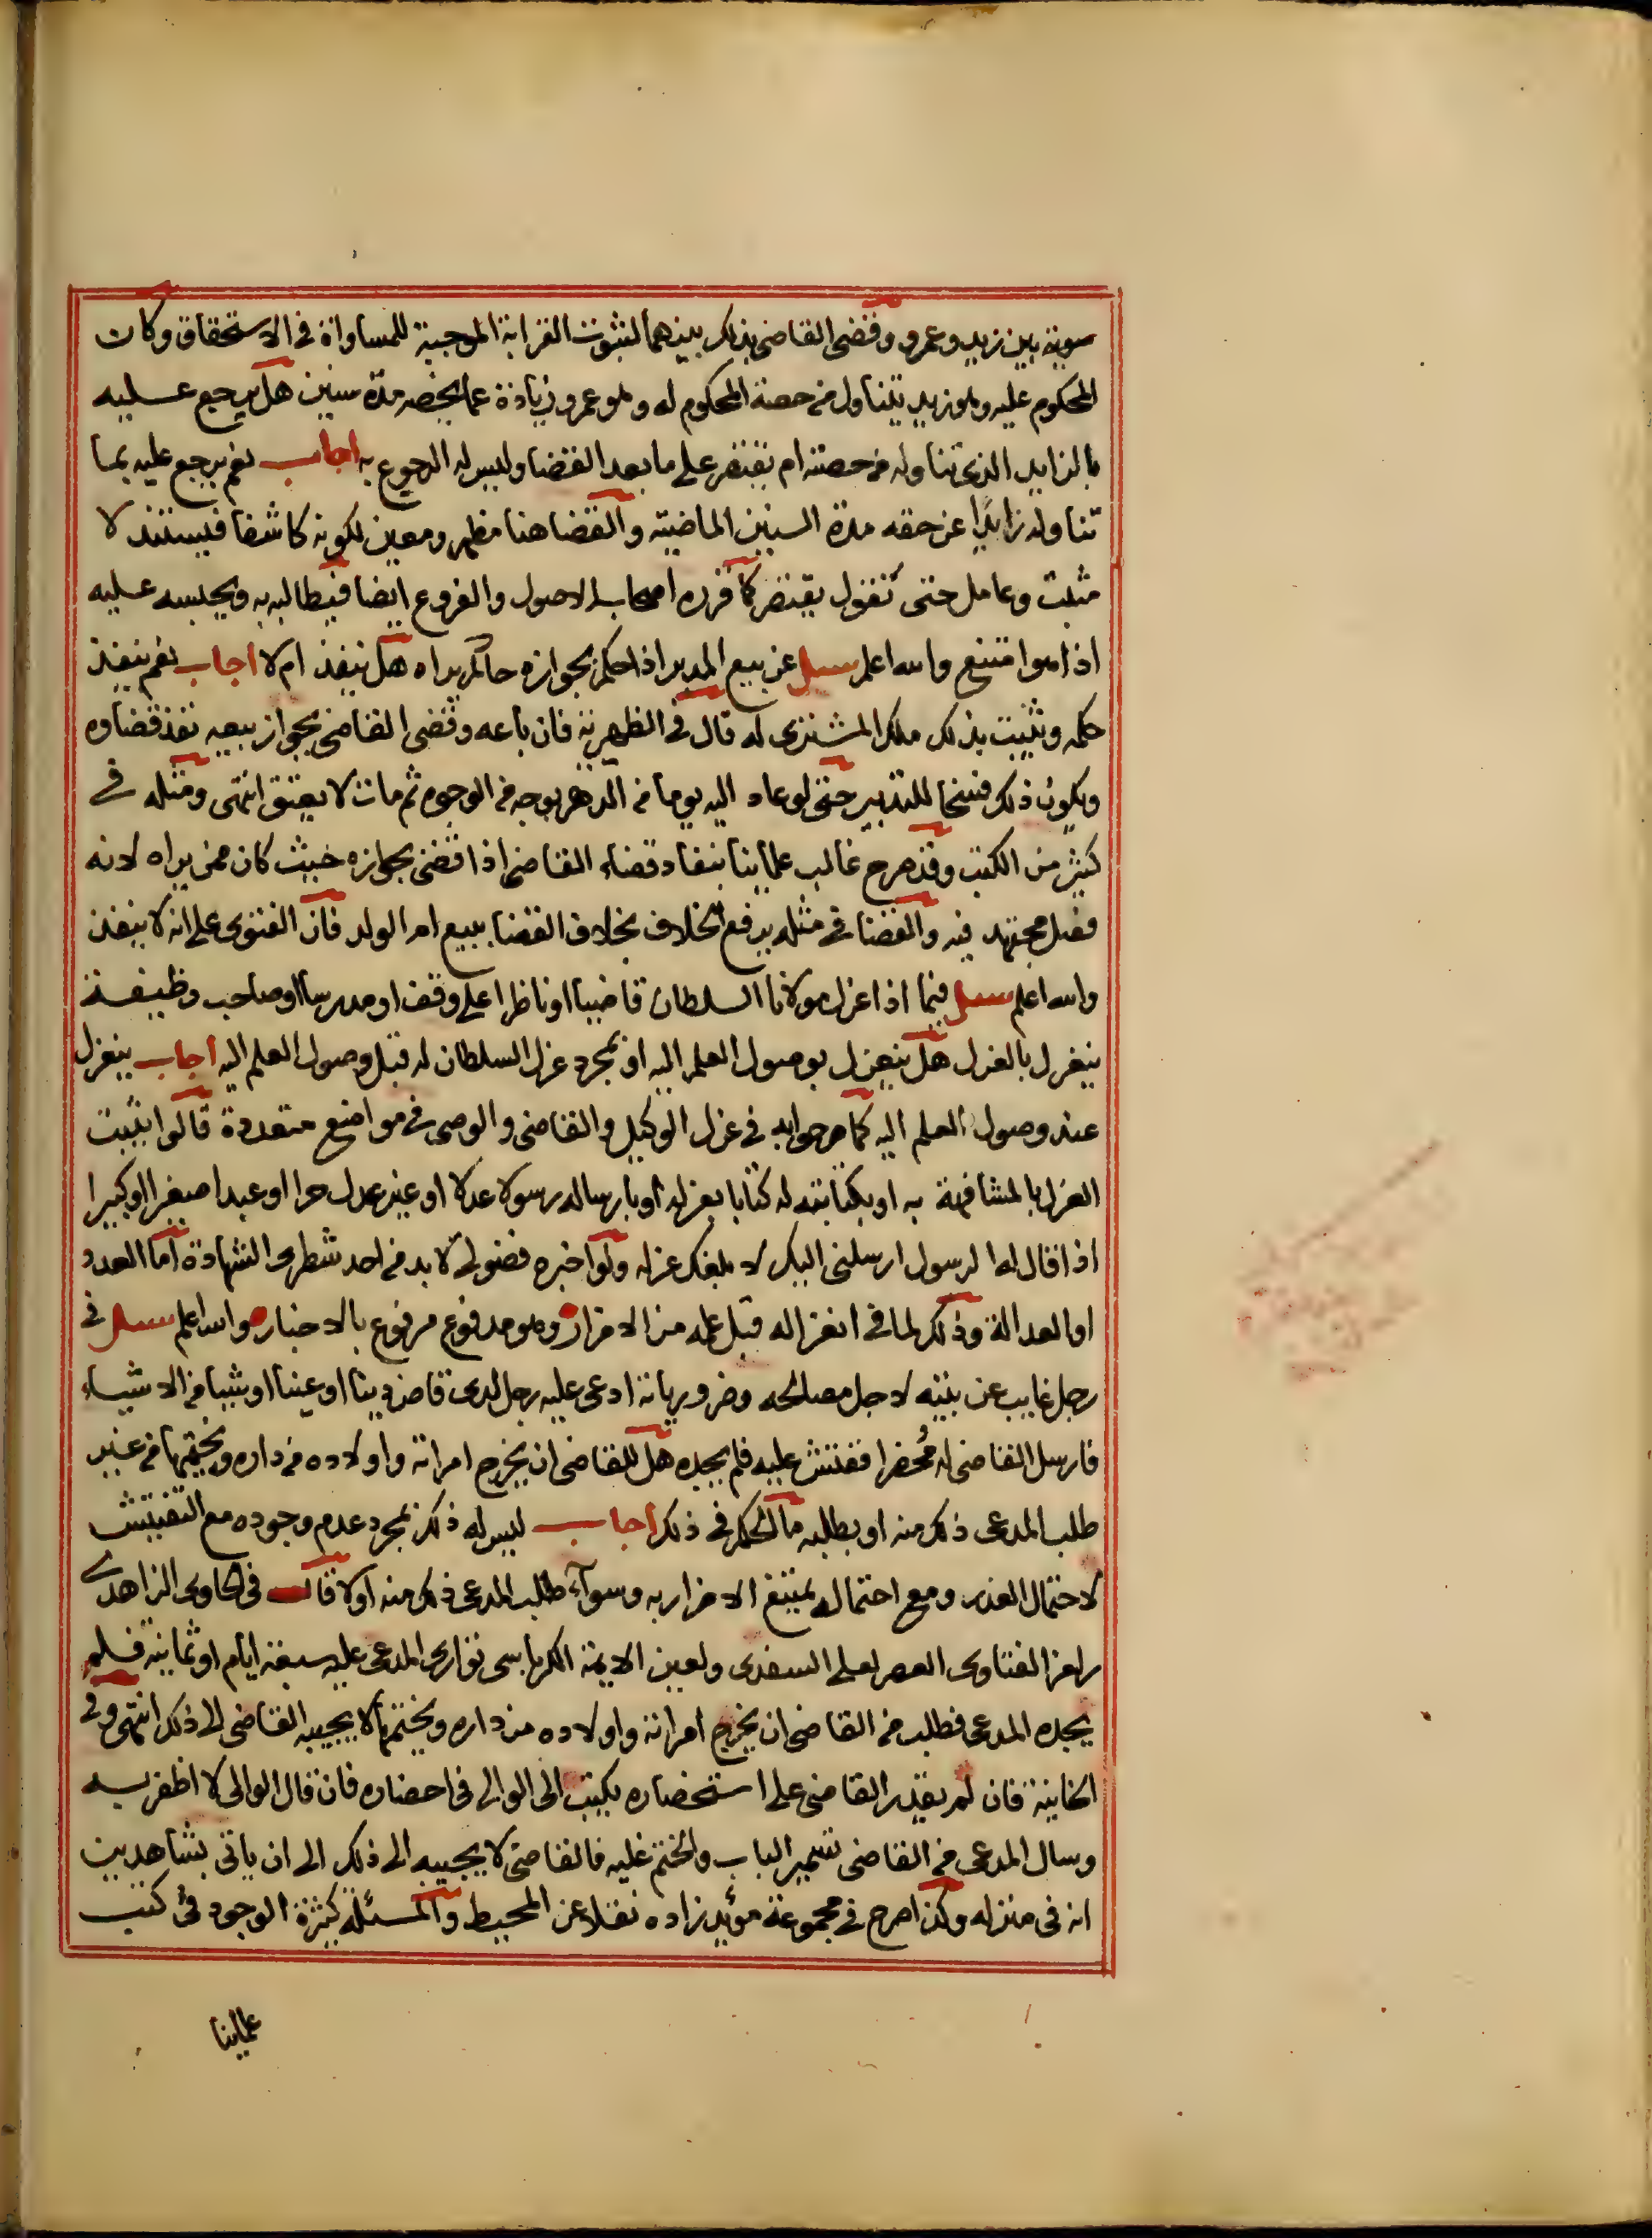 سوية بين زيد وعمرو وقضى القاضى بذلك بينهما لثبوت القرابة الموجبة للمساواة فى الاستحقاق وكان
المحكوم عليه وهو زيد يتناول من حصة المحكوم له وهو عمرو زيادة عما يخصه مدة سنين هل يرجع عليه
بالزايد الذى تناوله من حصته ام يقتصر على ما بعد القضا وليس له الرجوع به اجاب نعم يرجع عليه بما
تناوله زايدا عن حقه مدة السنين الماضية والقضا هنا مظهر ومعين لكونه كاشفا فيستند لا
مثبت وعامل حتى نقول يقتصر كما قرره اصحاب الاصول والفروع ايضا فيطالبه به ويحبسه عليه
اذا هو امتنع والله اعلم سيل عن بيع المدبر اذا حكم بجوازه حاكم يراه هل ينفذ ام لا اجاب نعم ينفذ
حكمه ويثبت بذلك ملك المشترى له قال فى الظهيرية فان باعه وقضى القاضى بجواز بيعه نفذ قضاوه
ويكون ذلك فسخا للتدبير حتى لو عاد اليه يوما من الدهر بوجه من الوجوه ثم مات لا يعتق انتهى ومثله فى
كثير من الكتب وقد صرح غالب علماينا بنفاد قضاء القاضى اذا قضى بجوازه حيث كان ممن يراه لانه
فصل مجتهد فيه والقضا فى مثله يرفع الخلاف بخلاف القضا ببيع ام الولد فان الفتوى على انه لا ينفذ
والله اعلم سيل فيما اذا عزل مولانا السلطان قاضيا او ناظرا على وقف او مدرسا او صاحب وظيفة
ينعزل بالعزل هل ينعزل بوصول العلم اليه او بمجرد عزل السلطان له قبل وصول العلم اليه اجاب ينعزل
عند وصول العلم اليه كما صرحوا به فى عزل الوكيل والقاضى والوصى فى مواضع متعددة قالوا يثبت
العزل بالمشافهة به او بكتابته له كتابا بعزله او بارساله رسولا عدلا او غير عدل حرا او عبدا صغيرا او كبيرا
اذا قال له الرسول ارسلنى اليك لابلغك عزله ولو اخبره فضولى لا بد من احد شطرى الشهادة اما العدد
او العدالة وذلك لما فى انعزاله قبل علمه من الاضرار وهو مدفوع مرفوع بالاخبار والله اعلم سيل فى
رجل غايب عن بيته لاجل مصالحه وضرورياته ادعى عليه رجل لدى قاض دينا او عينا او شيا من الاشياء
فارسل القاضى له مُحضرا ففتش عليه فلم يجده هل للقاضى ان يخرج امراته واولاده من داره ويختمها من غير
طلب المدعى ذلك منه او بطلبه ما الحكم فى ذلك اجاب ليس له ذلك بمجرد عدم وجوده مع التفتيش
لاحتمال العذر ومع احتماله يمتنع الاضرار به وسوآء طلب المدعى ذلك منه اولا قال فى الحاوى الزاهدى
رامزا لفتاوى العصر لعلى السغدى ولعين الايمة الكرباسى توارى المدعى عليه سبعة ايام او ثمانية فلم
يجده المدعى فطلب من القاضى ان يخرج امراته واولاده من داره ويختمها لا يجيبه القاضى الى ذلك انتهى وفى
الخانية فان لم يقدر القاضى على استحضاره يكتب الى الوالى فى احضاره فان قال الوالى لا اظفر به
وسال المدعى من القاضى تسمير الباب والختم عليه فالقاضى لا يجيبه الى ذلك الى ان ياتى بشاهدين
انه فى منزله وكذا صرح فى مجموعة مؤيد زاده نقلا عن المحيط والمسئلة كثيرة الوجود فى كتب
علماينا